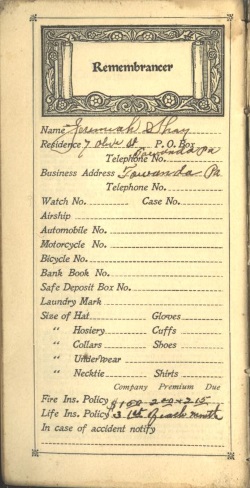 Remembrancer
Name Jeremiah S Shay
Residence 7 Olive St P. O. Box
Towanda Pa
Telephone No.
Business Address Towanda Pa
Telephone No.
Watch No. Case No.
Airship
Automobile No.
Motorcycle No.
Bicycle No.
Bank Book No.
Safe Deposit Box No.
Laundry Mark
Size of Hat Gloves
" Hosiery Cuffs
" Collars Shoes
" Underwear
" Necktie Shirts
Company Premium Due
Fire Ins. Policy
Life Ins. Policy 3 1st of each month
In case of accident notify